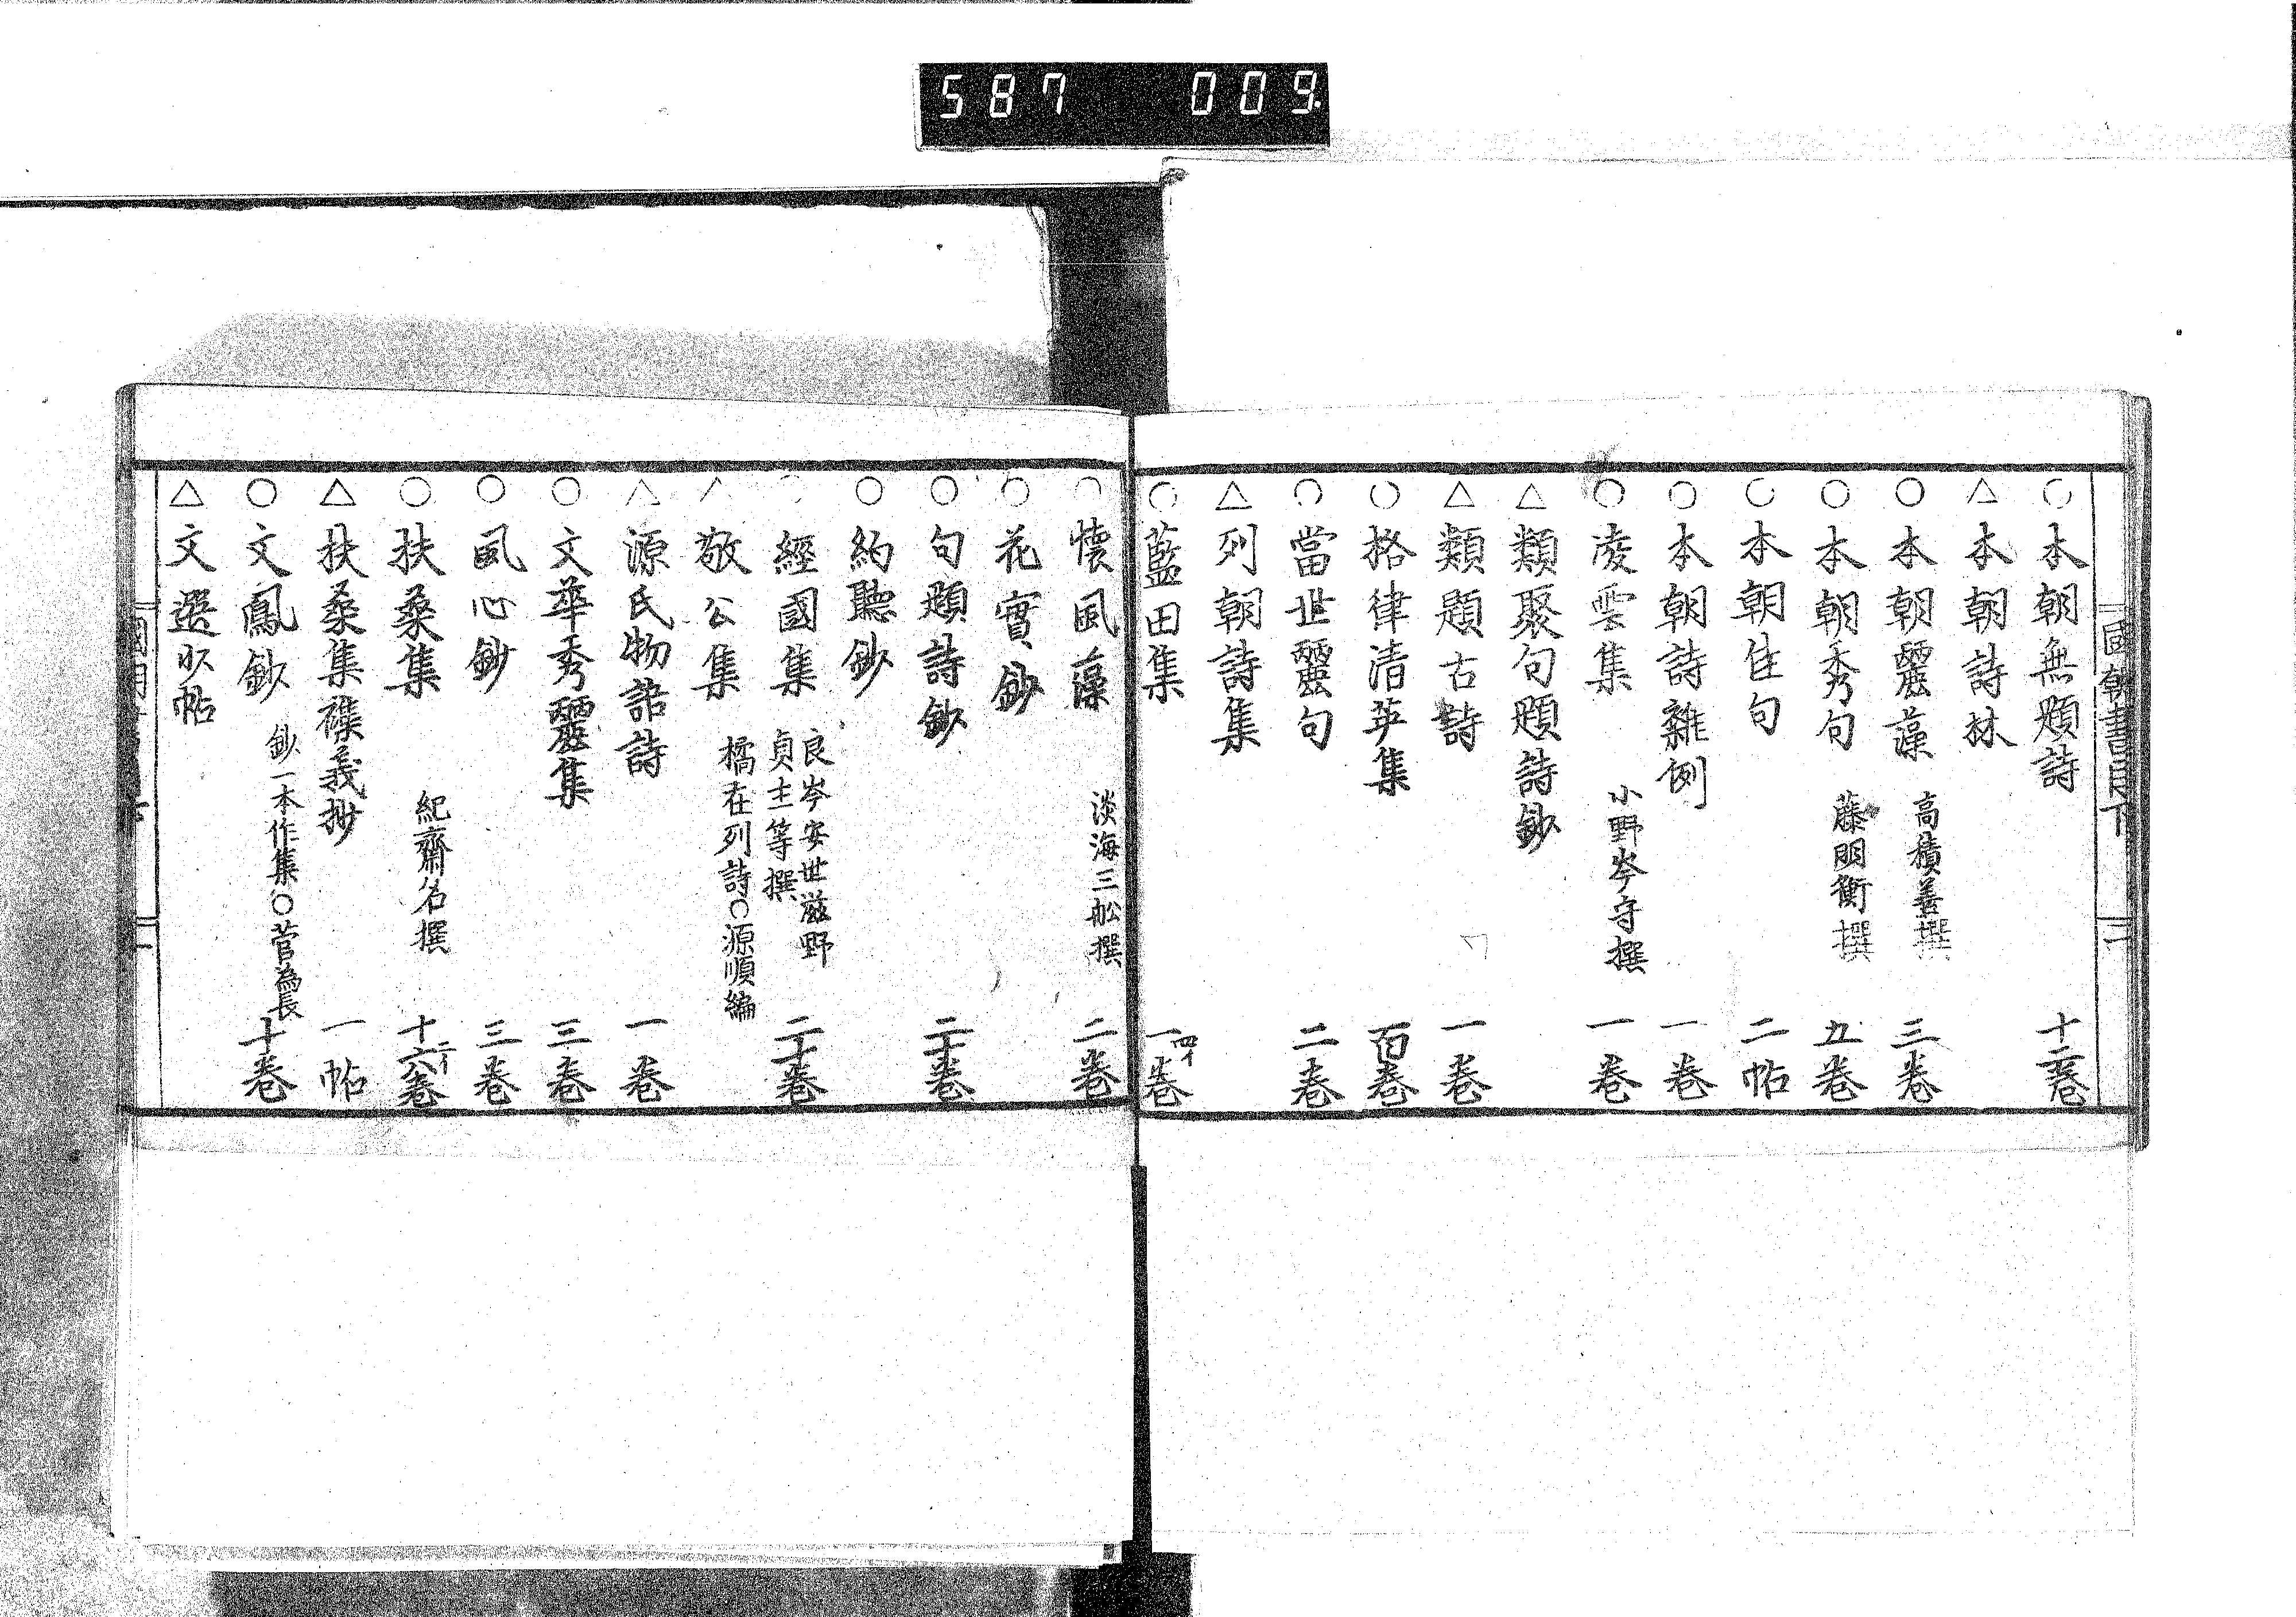 587 009
國朝書目下
○本朝無題詩 十二卷
△本朝詩林
○本朝麗藻 高積善撰 三卷
○本朝秀句 藤明衡撰 五卷
○本朝佳句 二帖
○本朝詩雜例 一卷
○凌雲集 小野岑守撰 一卷
△類聚句題詩鈔
△類題古詩 一卷
○格律清英集 百卷
○當世麗句 二卷
△列朝詩集
○藍田集 一卷 四イ
○懷風藻 淡海三舩撰 二卷
○花實鈔
○句題詩鈔 二十卷
○約聽鈔
○經國集 良岑安世滋野貞主等撰 二十卷
△敬公集 橘在列詩○源順編
△源氏物語詩 一卷
○文華秀麗集 三卷
○風心鈔 三卷
○扶桑集 紀齋名撰 十六卷 二イ
△扶桑集襍義抄 一帖
○文鳳鈔 鈔一本作集○菅為長 十卷
△文選少帖